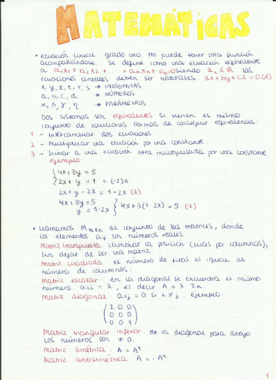 MATEMÁTICAS
• Ecuación lineal: grado uno. No puede tener otra función
acompañándose. Se define como una ecuación equivalente
a a₁x₁ + a₂x₂ ... + aₙxₙ = α, siendo aᵢ ∈ R. Las
ecuaciones lineales deben ser naturales.
x, y, z, t, r, s → INCÓGNITAS
a, b, c, d → NÚMEROS
α, β, γ → PARÁMETROS
Dos sistemas son equivalentes si tienen el mismo
conjunto de soluciones. Formas de conseguir equivalencia:
1 - Intercambiar dos ecuaciones
2 - Multiplicar una ecuación por una constante
3 - Sumar a una ecuación otra multiplicada por una constante
ejemplo
4x + 3y = 5
2x + y = 1 + (-2)x
2x + y - 2x = 1 - 2x (3)
4x + 3y = 5
y = 1 - 2x
4x + 3(1-2x) = 5 (1)
• Llamamos Mₘₓₙ al conjunto de las matrices, donde
los elementos aᵢⱼ son números reales
Matriz transpuesta: cambiar la posición (filas por columnas),
sin dejar de ser una matriz
Matriz cuadrada: el número de filas es igual al
número de columnas.
Matriz escalar: en la diagonal se encuentra el mismo
número aᵢᵢ = λ, es decir A = λ · Iₙ
Matriz diagonal: aᵢⱼ = 0 si i ≠ j. Ejemplo:
2 0 0
0 0 0
0 0 1
Matriz triangular inferior: de la diagonal para abajo
los números son ≠ 0.
Matriz simétrica: A = Aᵗ
Matriz antisimétrica: A = -Aᵗ
1